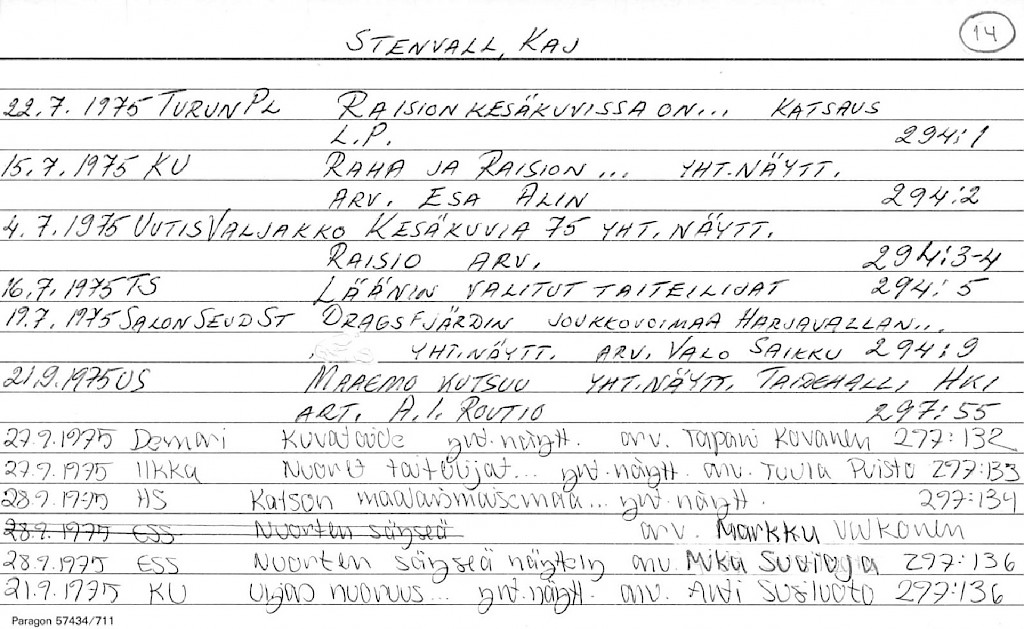 14
STENVALL, KAJ
22.7. 1975 TURUN PL RAISION KESÄKUVISSA ON... KATSAUS
L.P. 294:1
15.7. 1975 KU RAHA JA RAISION ... YHT.NÄYTT.
ARV. ESA ALIN 294:2
4.7. 1975 UUTISVALJAKKO KESÄKUVIA 75 YHT. NÄYTT.
RAISIO ARV. 294:3-4
16.7. 1975 TS LÄÄNIN VALITUT TAITEILIJAT 294:5
19.7. 1975 SALON SEUD ST DRAGSFJÄRDIN JOUKKOVOIMAA HARJAVALLAN...
YHT.NÄYTT. ARV. VALO SAIKKU 294:9
21.9.1975 US MAAEMO KUTSUU YHT.NÄYTT. TAIDEHALLI HKI
ART. A.I. ROUTIO 297:55
27.9.1975 Demari Kuvataide yht.näytt. arv. Tapani Kovanen 297:132
27.9.1975 Ilkka Nuoret taiteilijat... yht.näytt. arv. Tuula Puisto 297:133
28.9.1975 HS Katson maalaismaisemaa... yht.näytt. 297:134
28.9.1975 ESS Nuorten sävyseä arv. Markku Valkonen
28.9.1975 ESS Nuorten sävyseä näyttely arv. Mika Suvioja 297:136
21.9.1975 KU Uljas nuoruus... yht.näytt. arv. Anti Susiluoto 297:136
Paragon 57434/711